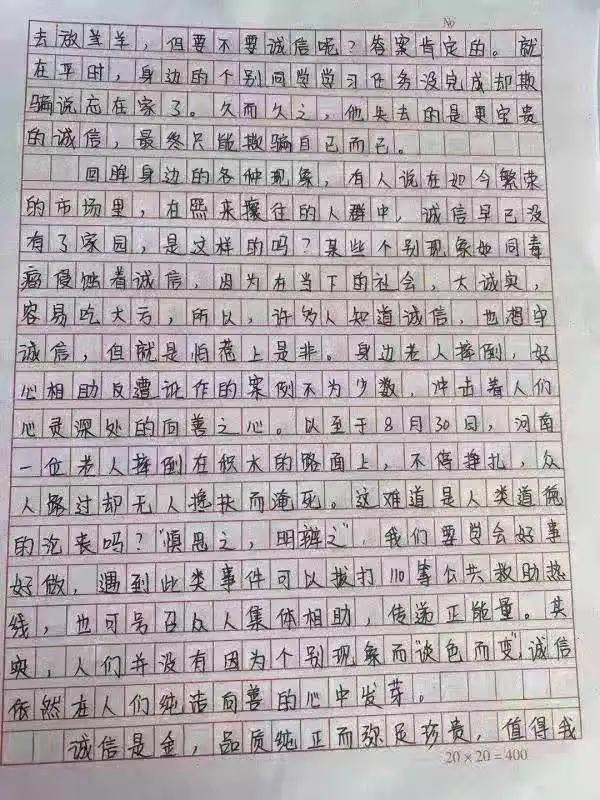 No
去放羊羊，但要不要诚信呢？答案肯定的。就
在平时，身边的个别同学学习任务没完成却欺
骗说忘在家了。久而久之，他失去的是更宝贵
的诚信，最终只能欺骗自己而已。
回眸身边的各种现象，有人说在如今繁荣
的市场里，在熙来攘往的人群中，诚信早已没
有了家园，是这样的吗？某些个别现象如同毒
瘤侵蚀着诚信，因为在当下的社会，太诚实，
容易吃大亏，所以，许多人知道诚信，也想守
诚信，但就是怕惹上是非。身边老人摔倒，好
心相助反遭讹诈的案例不为少数，冲击着人们
心灵深处的向善之心。以至于8月30日，河南
一位老人摔倒在积水的路面上，不停挣扎，众
人路过却无人搀扶而淹死。这难道是人类道德
的沦丧吗？“慎思之，明辨之”，我们要学会好事
好做，遇到此类事件可以拔打110等公共救助热
线，也可号召众人集体相助，传递正能量。其
实，人们并没有因为个别现象而“谈色而变”，诚信
依然在人们纯洁向善的心中发芽。
诚信是金，品质纯正而弥足珍贵，值得我
20×20=400